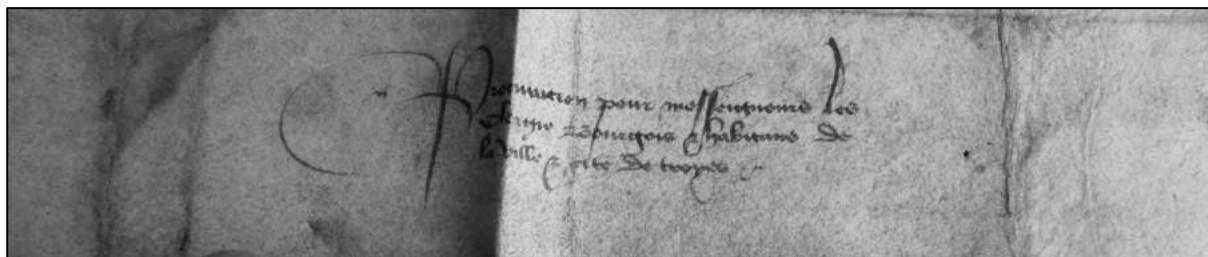 Procuration pour messeigneurs les
Clergie Bourgois & habitans de
la ville & cite de troyes